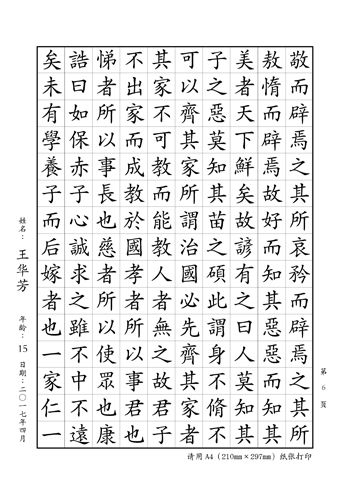 敬而辟焉之其所哀矜而辟焉之其所
敖惰而辟焉故好而知其惡惡而知其
美者天下鮮矣故諺有之曰人莫知其
子之惡莫知其苗之碩此謂身不脩不
可以齊其家所謂治國必先齊其家者
其家不可教而能教人者無之故君子
不出家而成教於國孝者所以事君也
悌者所以事長也慈者所以使眾也康
誥曰如保赤子心誠求之雖不中不遠
矣未有學養子而后嫁者也一家仁一
姓名：王华芳 年龄：15 日期：二〇一七年四月
第 6 页
请用 A4（210mm×297mm）纸张打印